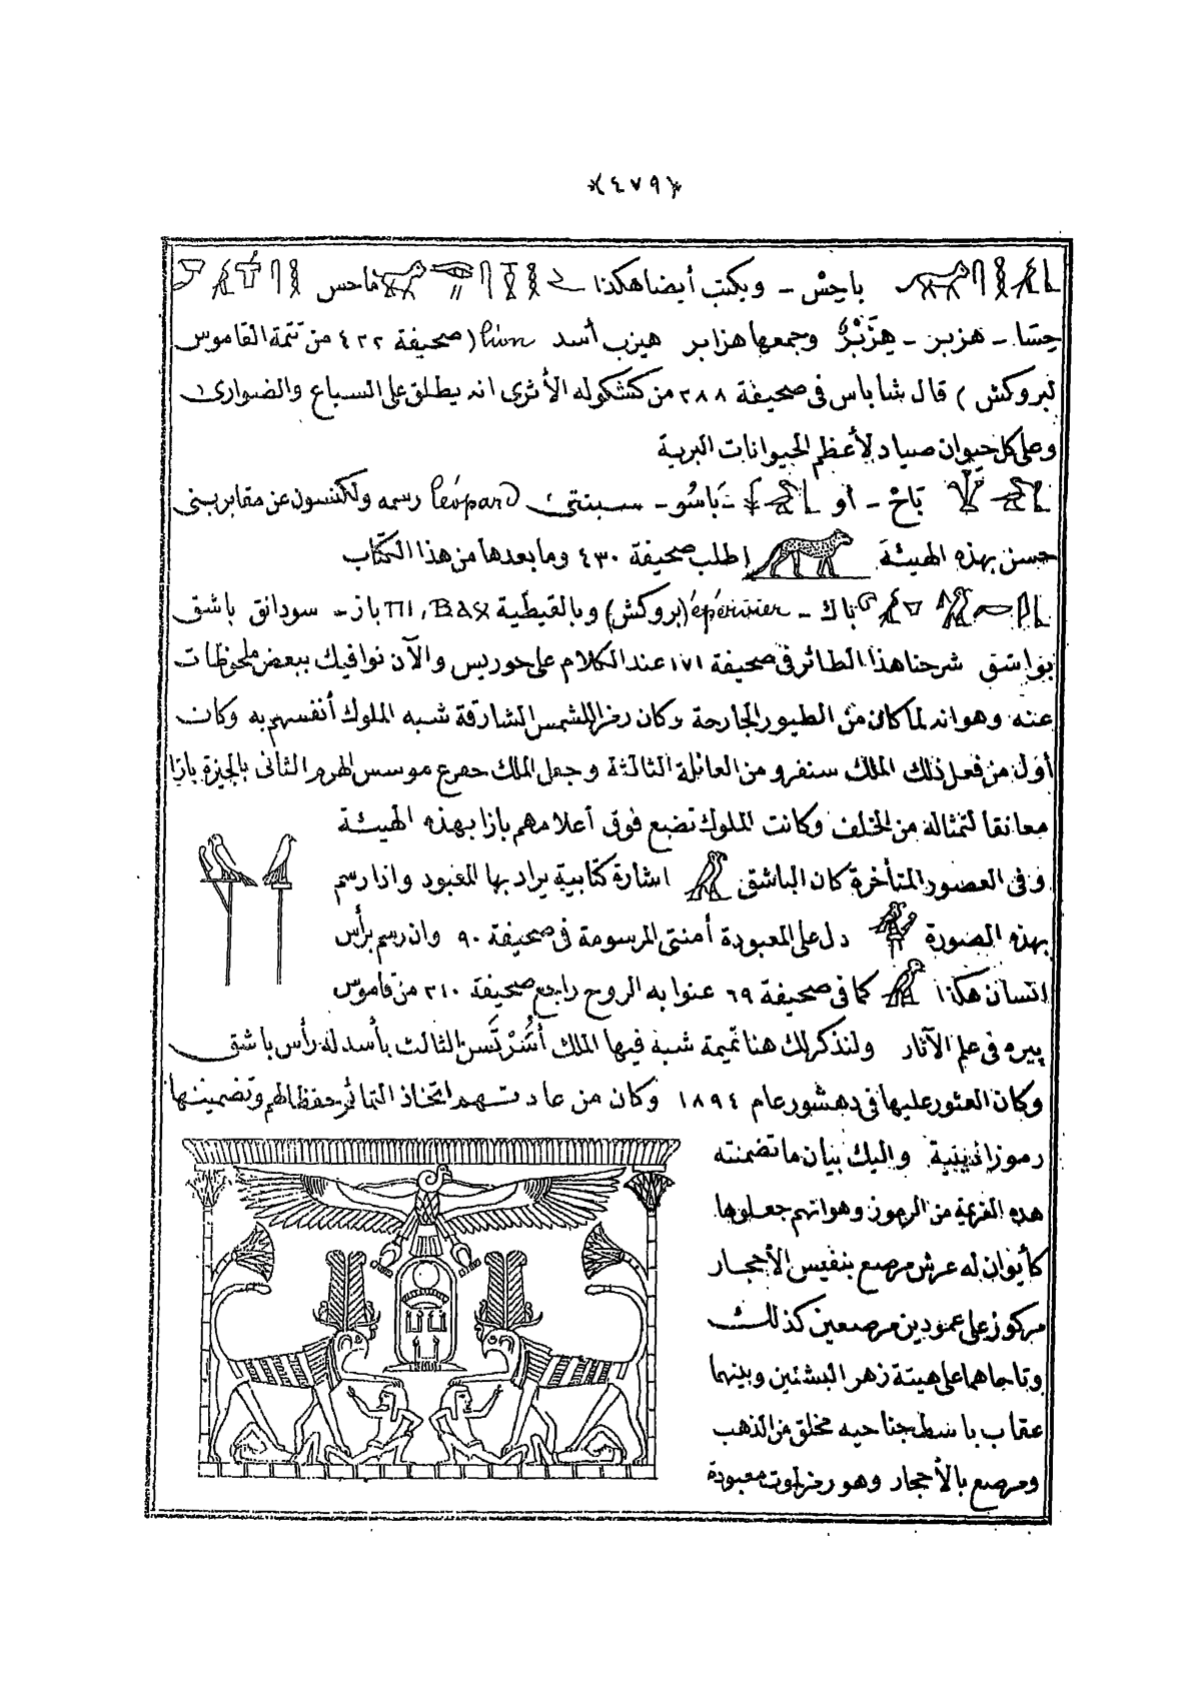 ﴿٤٧٩﴾
باحِسْ – ويكتب أيضا هكذا فاحس
حِسَا – هزبر – هِزَبْرٌ وجمعها هزابر هيزب أسد lion (صحيفة ٤٢٢ من تتمة القاموس
لبروكش) قال شاباس فى صحيفة ٢٨٨ من كشكوله الأثرى انه يطلق على السباع والضوارى
وعلى كل حيوان صياد لأعظم الحيوانات البرية
بَاخْ – أو بَاسُو – سبنتى léopard رسمه ولكنسون عن مقابر بنى
حسن بهذه الهيئة اطلب صحيفة ٤٣٠ وما بعدها من هذا الكتاب
باك – épérivier (بروكش) وبالقبطية ⲠⲒ, ⲂⲀⳈ باز – سودانق باشق
بواشق شرحنا هذا الطائر فى صحيفة ١٧١ عند الكلام على حوريس والآن نوافيك ببعض ملحوظات
عنه وهو انه لما كان من الطيور الجارحة وكان رمزا للشمس الشارقة شبه الملوك أنفسهم به وكان
أول من فعل ذلك الملك سنفرو من العائلة الثالثة وجعل الملك خفرع موسس الهرم الثانى بالجيزة بازا
معانقا لتمثاله من الخلف وكانت الملوك تضع فوق أعلامهم بازا بهذه الهيئة
وفى العصور المتأخرة كان الباشق اشارة كتابية يراد بها المعبود واذا رسم
بهذه الصورة دل على المعبودة أمنتى المرسومة فى صحيفة ٩٠ وان رسم برأس
انسان هكذا كما فى صحيفة ٦٩ عنوا به الروح راجع صحيفة ٢١٠ من قاموس
پيره فى علم الآثار ولنذكر لك هنا تميمة شبه فيها الملك أُسُرْتَسِن الثالث بأسد له رأس باشق
وكان العثور عليها فى دهشور عام ١٨٩٤ وكان من عادتهم اتخاذ التمائم حفظا لهم وتضمينها
رموزا دينية واليك بيان ما تضمنته
هذه من الرموز وهو انهم جعلوها
كأيوان له عرش مرصع بنفيس الأحجار
مركوز على عمودين مرصعين كذلك
وتاجاهما على هيئة زهر البشنين وبينهما
عقاب باسط جناحيه مخلق من الذهب
ومرصع بالأحجار وهو رمز لموت معبودة